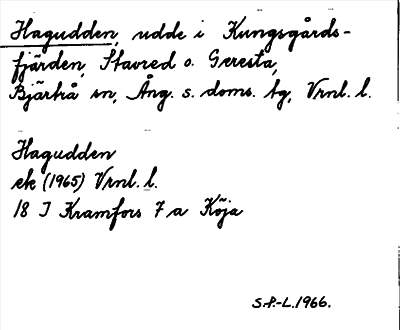 Hagudden, udde i Kungsgårds-
fjärden, Stavred o. Geresta,
Bjärtrå sn, Ång. s. doms. tg, Vrnl. l.
Hagudden
ek (1965) Vrnl. l.
18 I Kramfors 7 a Köja
S.P.-L. 1966.